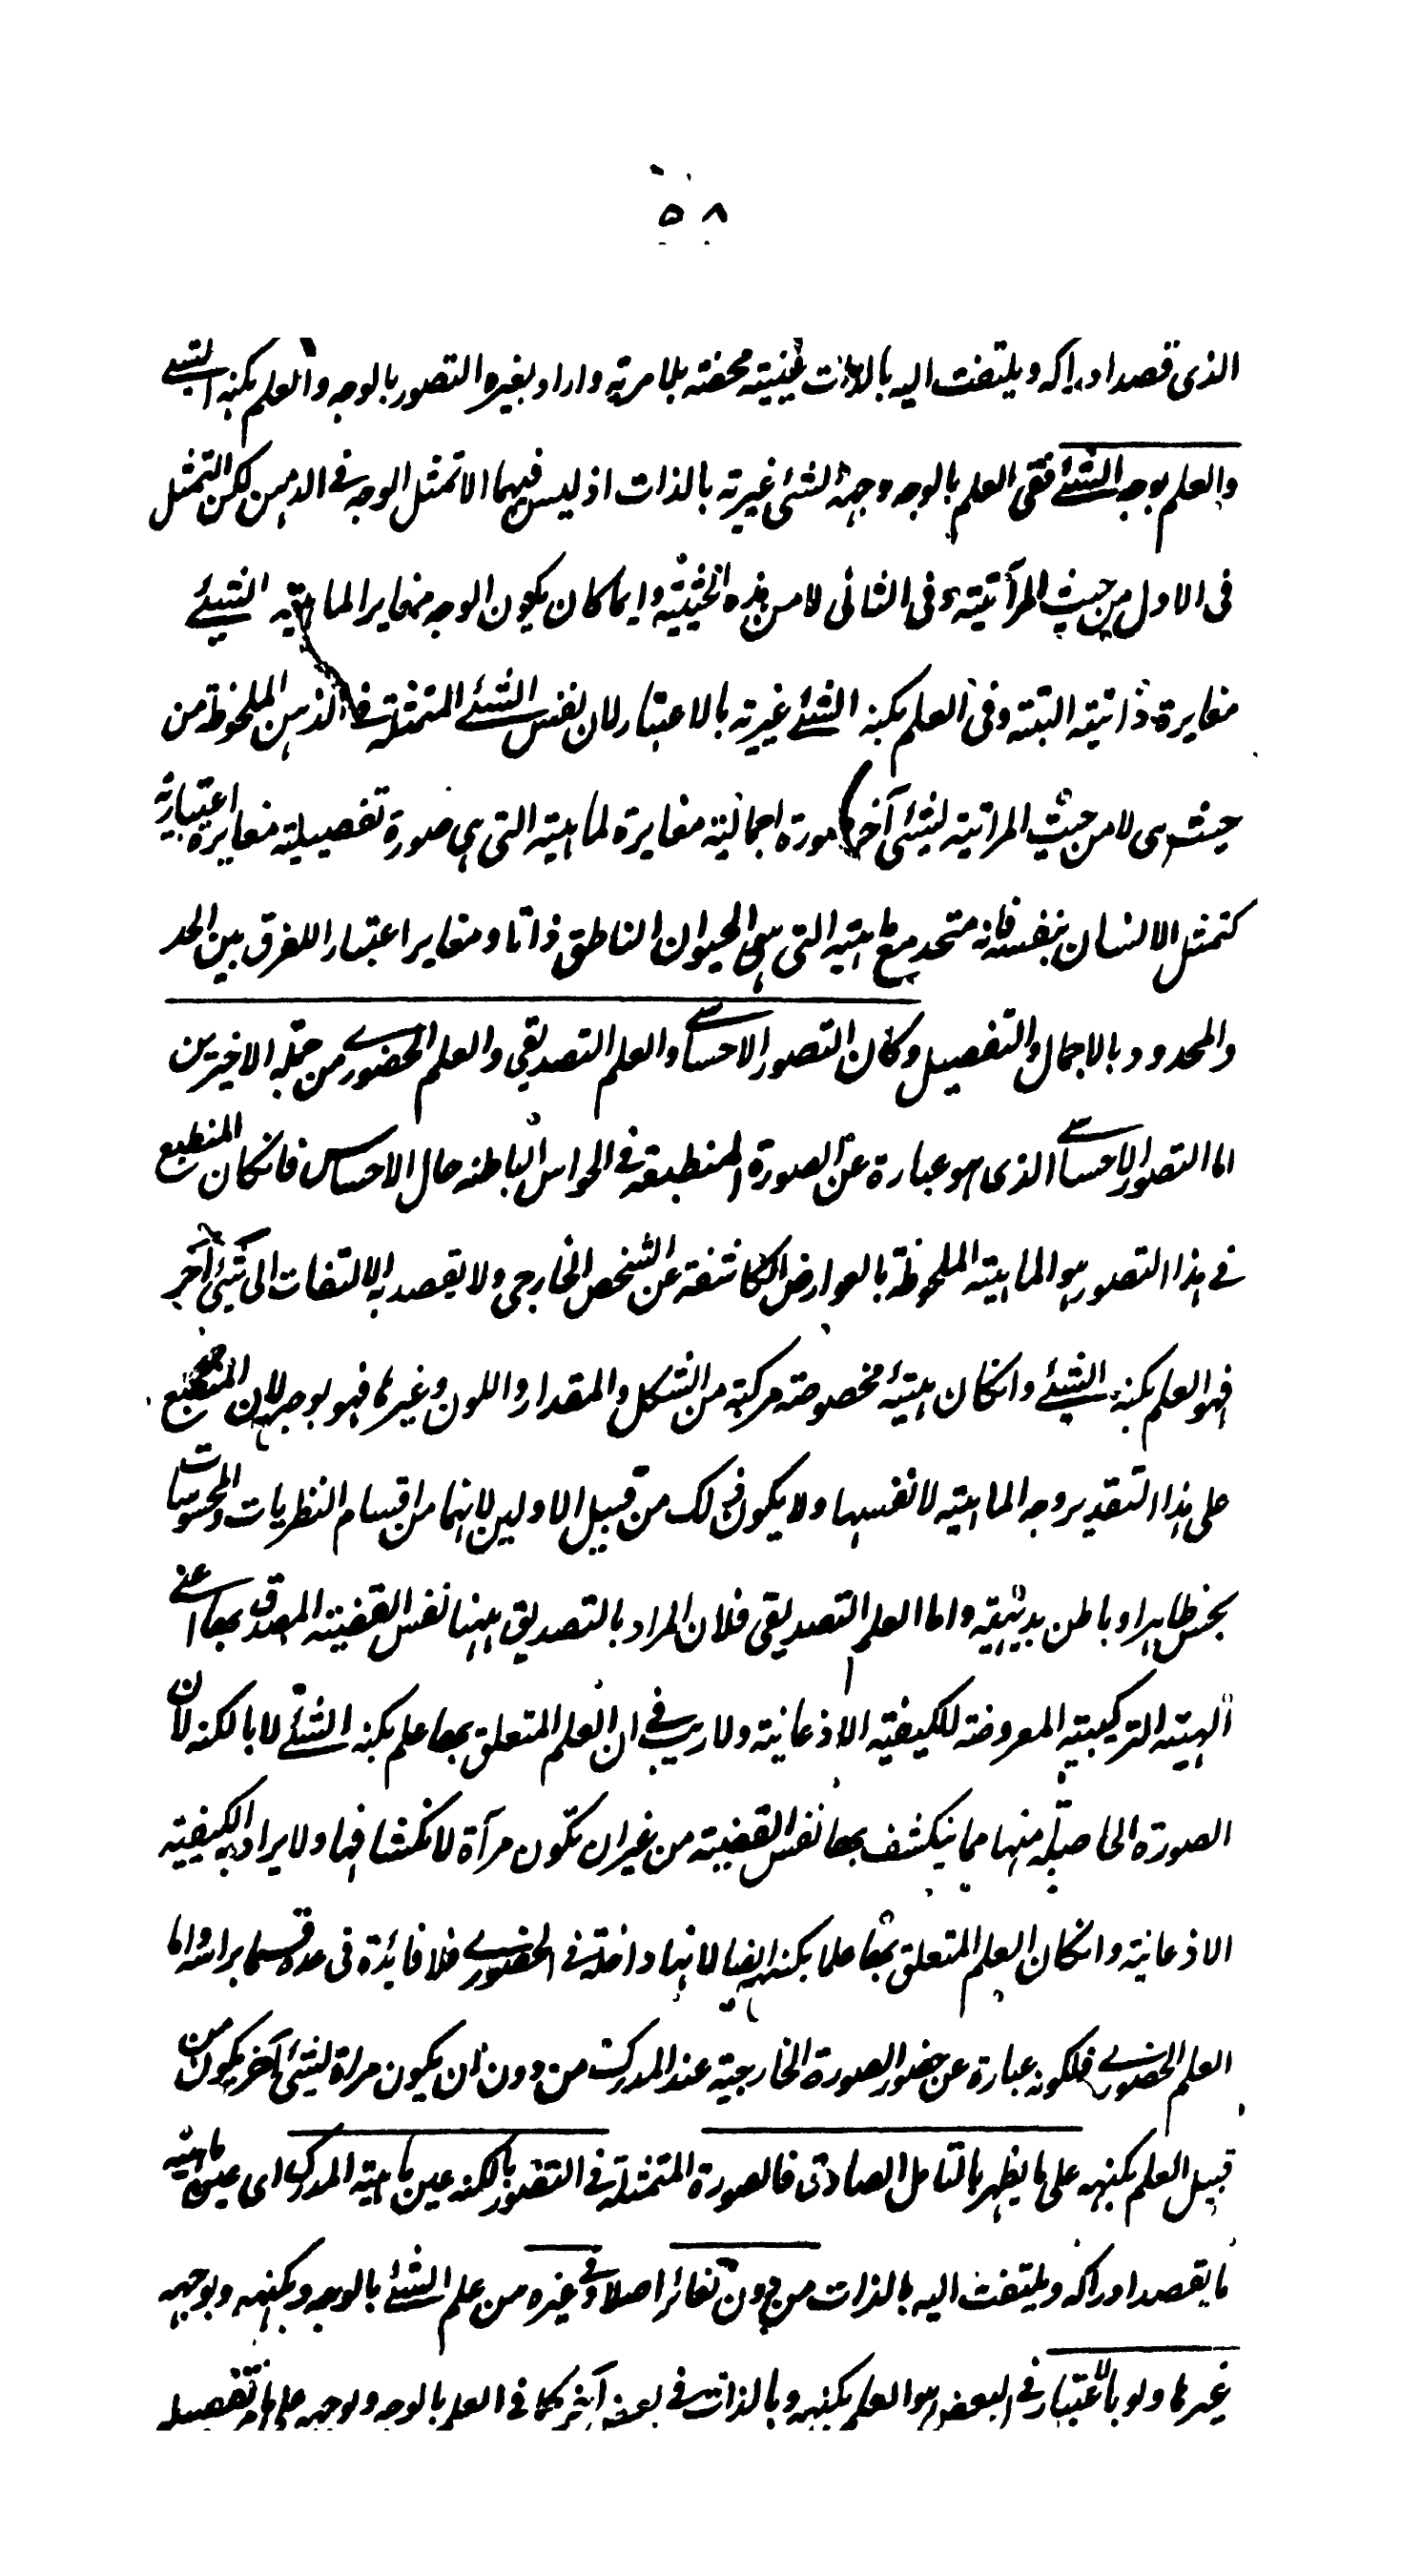 ٥٨
الذى قصد ادراكه ويلتفت اليه بالذات عينية محضة بلا مرية واراد بغيره التصور بالوجه والعلم بكنه الشيئ
والعلم بوجه الشيئ ففى العلم بالوجه وجهة الشئى غيرية بالذات اذ ليس فيهما الا تمثل الوجه فى الذهن لكن التمثل
فى الاول من حيث المرآتية وفى الثانى لا من هذه الحيثية وايما كان يكون الوجه مغايرا لماهية الشيئ
مغايرة ذاتية البتة وفى العلم بكنه الشيئ غيرية بالاعتبار لان نفس الشيئ المتمثلة فى الذهن الملحوظة من
حيث هى لا من حيث المراتية لشئى آخر صورة اجمالية مغايرة لماهية التى هى صورة تفصيلية مغايرة اعتبارية
كتمثل الانسان بنفسه فانه متحد مع ماهيته التى هى الحيوان الناطق ذاتا ومغاير اعتبارا للفرق بين الحد
والمحدود بالاجمال والتفصيل وكان التصور الاحساسى والعلم التصديقى والعلم الحضورى من جملة الاخيرين
اما التصور الاحساسى الذى هو عبارة عن الصورة المنطبعة فى الحواس الباطنه حال الاحساس فانكان المنطبع
فى هذا التصور هو الماهية الملحوظة بالعوارض الكاشفة عن الشخص الخارجى ولا يقصد به الالتفات الى شئى آخر
فهو العلم بكنه الشيئ وانكان هيئة مخصوصة مركبة من الشكل والمقدار واللون وغيرها فهو بوجهه لان المنطبع
على هذا التقدير وجه الماهية لا نفسها ولا يكون ذلك من قبيل الاولين لانهما من اقسام النظريات والمحسوسات
بحس ظاهر او باطن بديهية واما العلم التصديقى فلان المراد بالتصديق ههنا نفس القضية المصدق بها اعنى
الهيئة التركيبية المعروضة للكيفية الاذعانية ولا ريب فى ان العلم المتعلق بها علم بكنه الشيئ لا بالكنه لان
الصورة الحاصلة منها مما ينكشف بها نفس القضية من غير ان تكون مرآة لانكشافها ولا يراد به الكيفية
الاذعانية وانكان العلم المتعلق بها علما بكنهه ايضا لانها داخلة فى الحضورى فلا فائدة فى عده قسما براسه واما
العلم الحضورى فلكونه عبارة عن حضور الصورة الخارجية عند المدرك من دون ان يكون مراة لشئى آخر يكون من
قبيل العلم بكنهه على ما يظهر بالتامل الصادق فالصورة المتمثلة فى التصور بالكنه عين ماهية المدرك اى عين ماهية
ما يقصد ادراكه ويلتفت اليه بالذات من دون تغائر اصلا وفى غيره من علم الشيئ بالوجه وبكنهه وبوجهه
غيرها ولو بالاعتبار فى البعض هو العلم بكنهه وبالذات فى بعض آخر كما فى العلم بالوجه وبوجهه على ما مر تفصيله